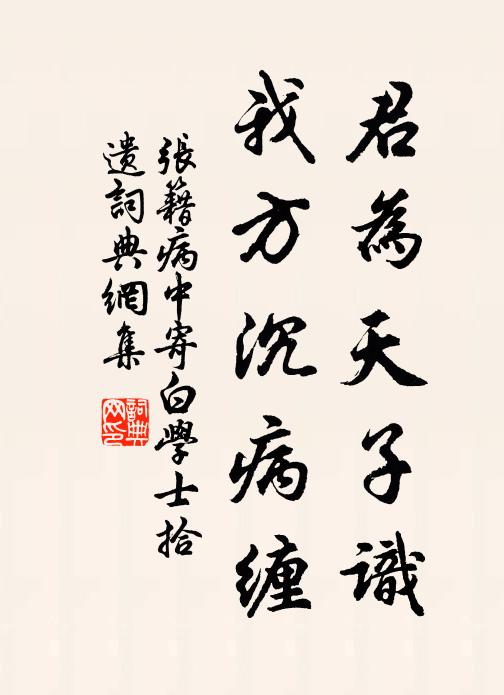 君為天子識
我方沉病纏
張籍病中寄白學士拾
遺詞典網集
詞典
网印